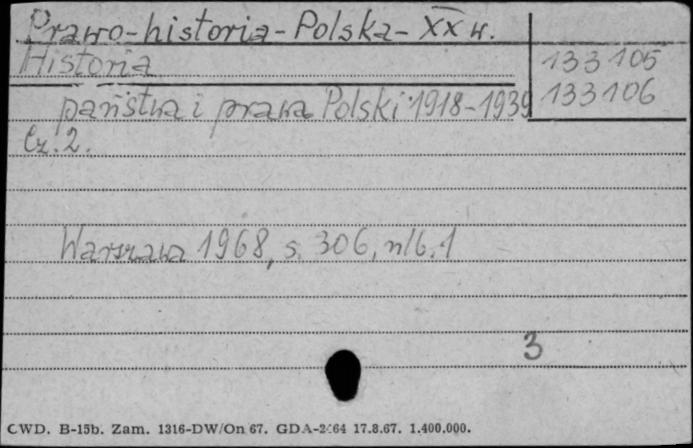 Prawo-historia-Polska-XX w.
Historia
133 105
państwa i prawa Polski 1918-1939
133106
Cz. 2.
Warszawa 1968, s. 306, nlb. 1
3
CWD. B-15b. Zam. 1316-DW/On 67. GDA-2464 17.8.67. 1.400.000.